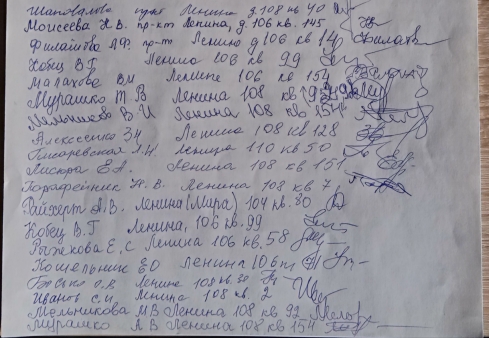 Шаповалова пркт Ленина д.108 кв 40
Моисеева Н.В. пр-кт Ленина, д.106 кв. 145
Филатова Л.Ф. пр-т Ленина д 106 кв 14
Кобец В.Г Ленина 106 кв 99
Малахова ВМ Ленина 106 кв 154
Мурашко Т В Ленина 108 кв
Мельников В.И Ленина 108 кв 154
Алексеенко ЗН Ленина 108 кв 128
Писаревская Л.Н. Ленина 110 кв 50
Лисюра Е.А. Ленина 108 кв 151
Н.В. Ленина 108 кв 7
Райхерт А.В. Ленина (Мира) 104 кв. 80
Кобец В.Г Ленина, 106 кв. 99
Рыжекова Е.С Ленина 106 кв. 58
Кошельник ЕО Ленина 106
О.В Ленина 108 кв. 30
Иванов С.И. Ленина 108 кв. 2
Мельникова МВ Ленина 108 кв 92
Мурашко А В Ленина 108 кв 154